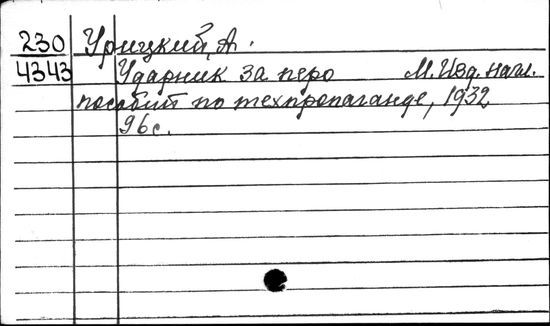 230 Урицкий, А.
4343 Ударник за перо М. Изд. нагл.
пособий по техпропаганде, 1932
96 с.